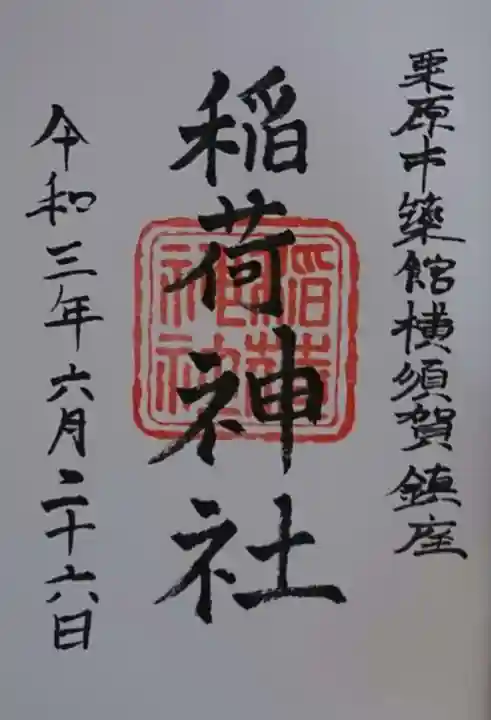 栗原市築館横須賀鎮座
稲荷神社
稲荷神社
令和三年六月二十六日